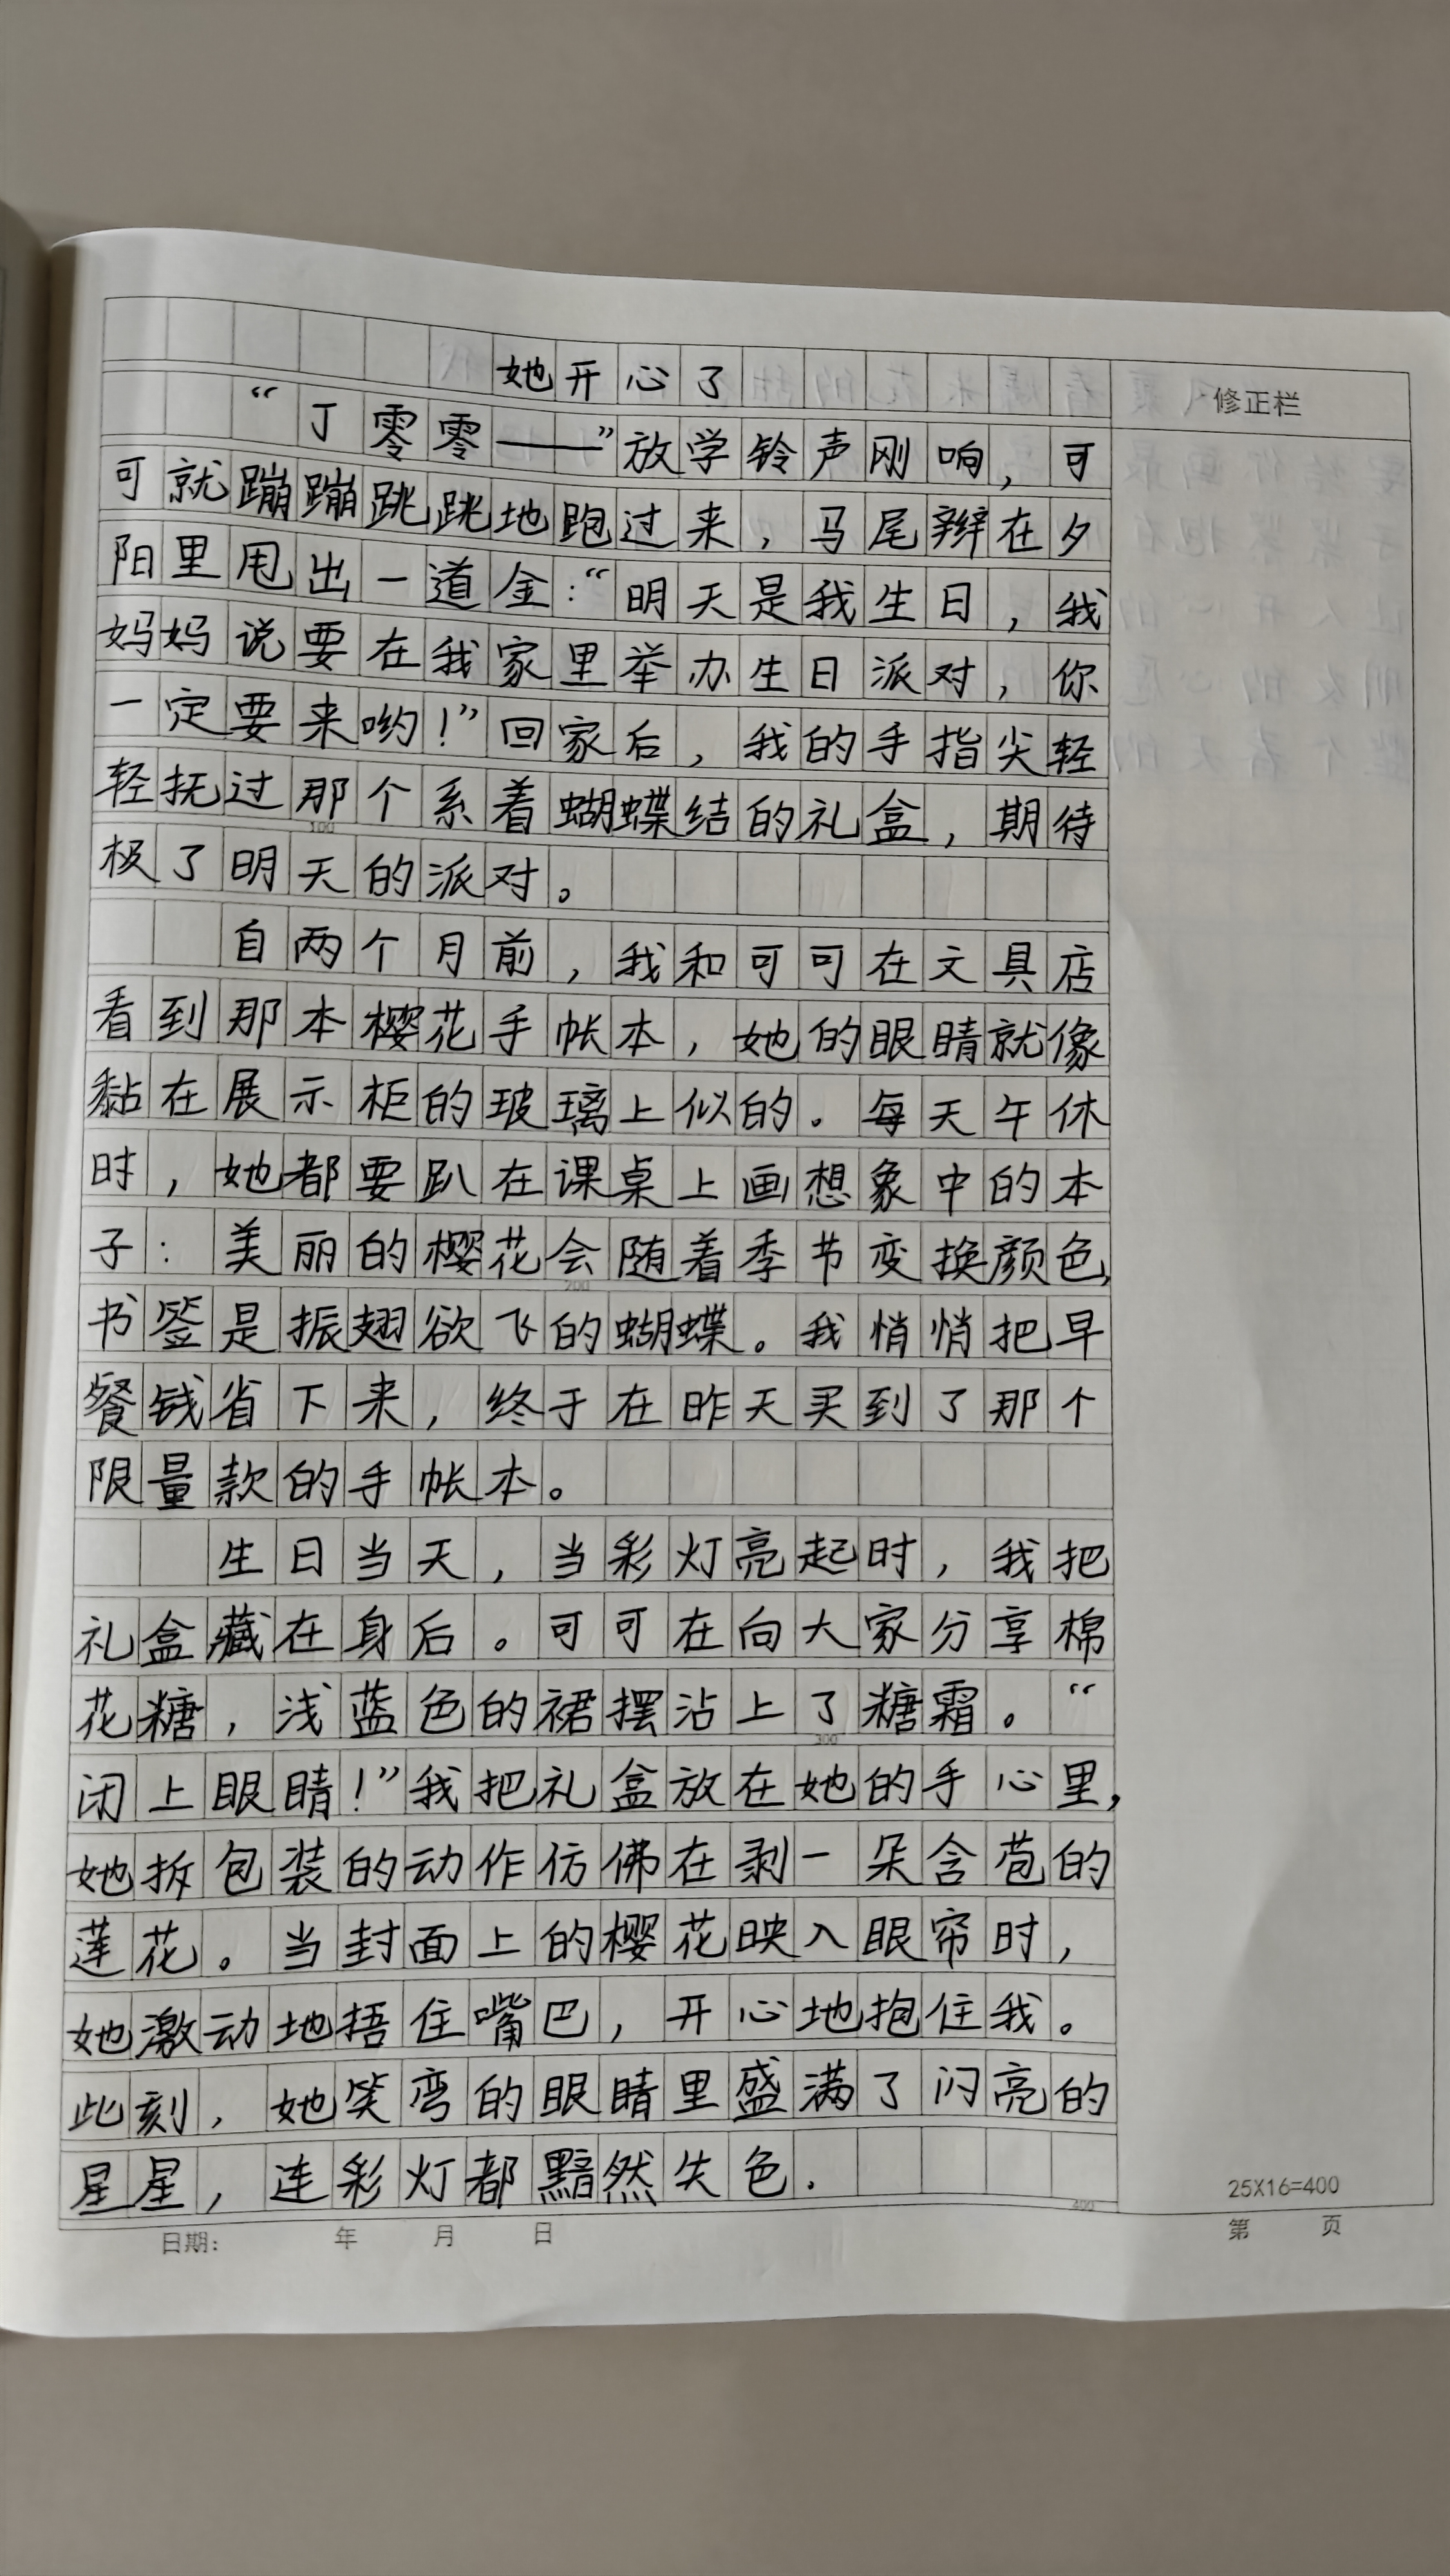 她开心了
修正栏
“丁零零——”放学铃声刚响，可
可就蹦蹦跳跳地跑过来，马尾辫在夕
阳里甩出一道金：“明天是我生日，我
妈妈说要在我家里举办生日派对，你
一定要来哟！”回家后，我的手指尖轻
轻抚过那个系着蝴蝶结的礼盒，期待
100
极了明天的派对。
自两个月前，我和可可在文具店
看到那本樱花手帐本，她的眼睛就像
黏在展示柜的玻璃上似的。每天午休
时，她都要趴在课桌上画想象中的本
子：美丽的樱花会随着季节变换颜色，
200
书签是振翅欲飞的蝴蝶。我悄悄把早
餐钱省下来，终于在昨天买到了那个
限量款的手帐本。
生日当天，当彩灯亮起时，我把
礼盒藏在身后。可可在向大家分享棉
花糖，浅蓝色的裙摆沾上了糖霜。“
300
闭上眼睛！”我把礼盒放在她的手心里，
她拆包装的动作仿佛在剥一朵含苞的
莲花。当封面上的樱花映入眼帘时，
她激动地捂住嘴巴，开心地抱住我。
此刻，她笑弯的眼睛里盛满了闪亮的
星星，连彩灯都黯然失色.
400
25X16=400
日期： 年 月 日
第 页